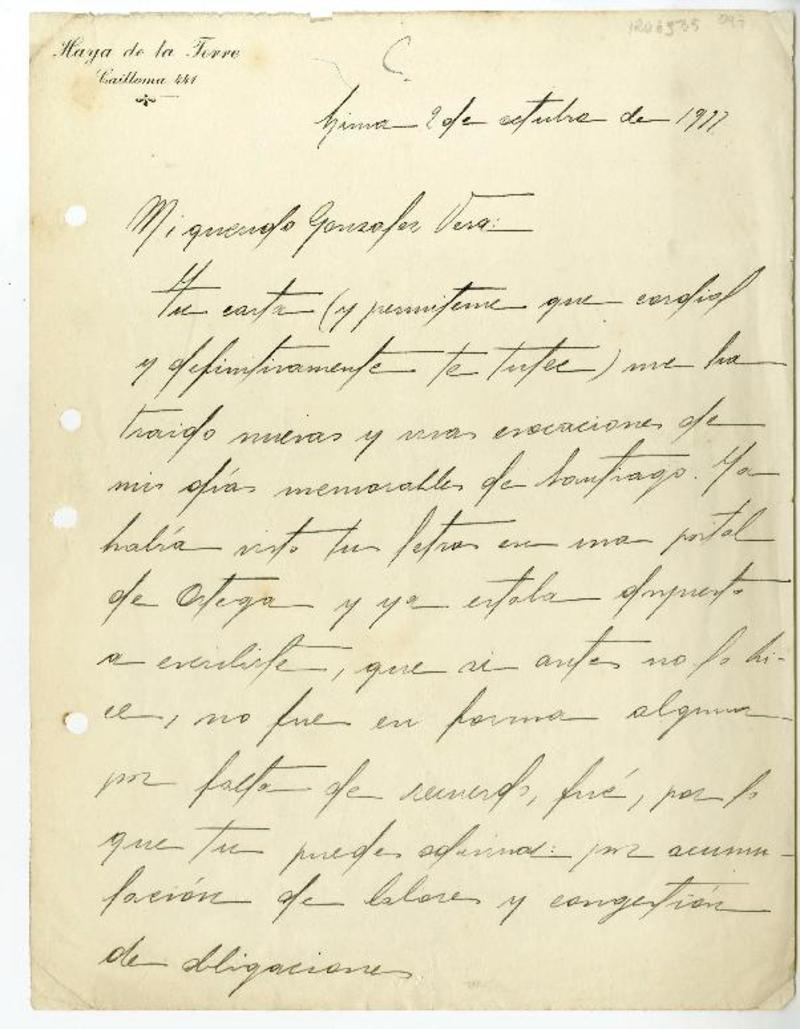 Haya de la Torre
Cailloma 441
Lima 2 de octubre de 1922
Mi querido González Vera:
Tu carta (y permíteme que cordial
y definitivamente te tutee) me ha
traído nuevas y vivas evocaciones de
mis días memorables de Santiago. Ya
había visto tus letras en una postal
de Ortega y ya estaba dispuesto
a escribirte, que si antes no lo hi-
ce, no fue en forma alguna
por falta de recuerdo, fué, por lo
que tu puedes adivinar: por acumu-
lación de labores y congestión
de obligaciones.